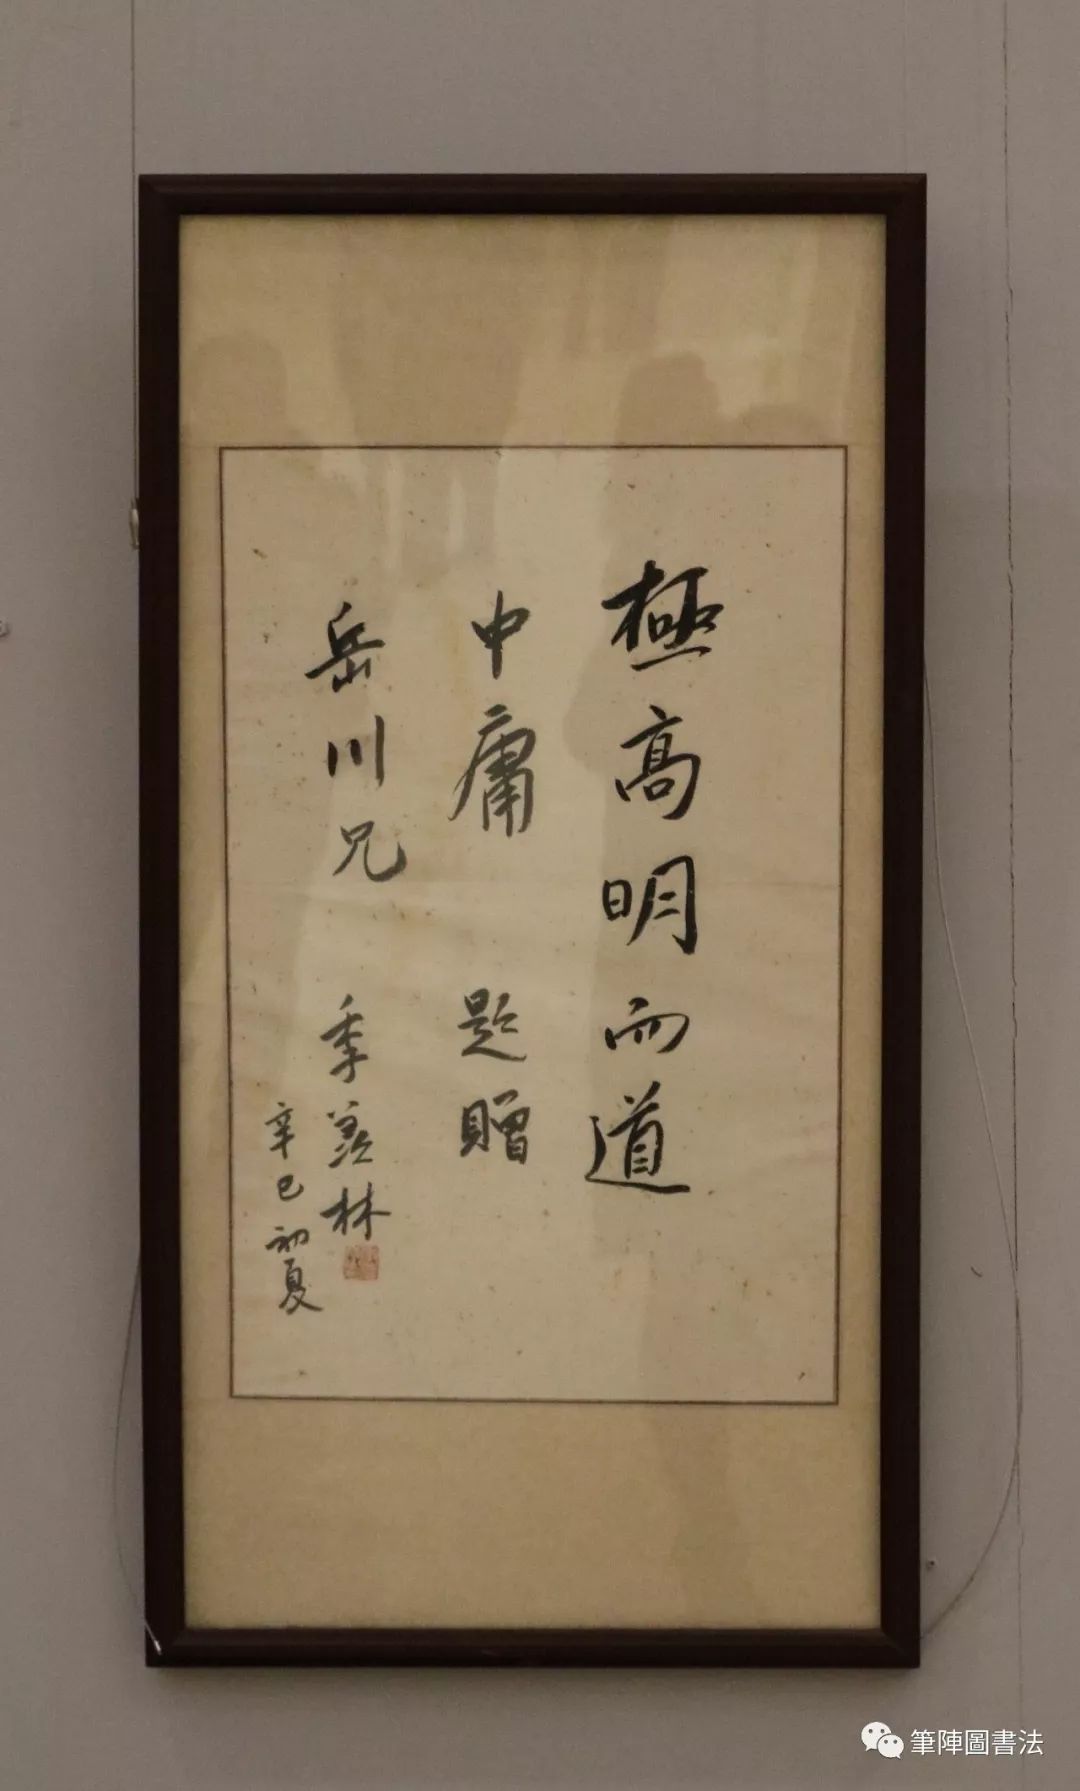 極高明而道
中庸 題贈
岳川兄 季羡林
辛巳初夏
筆陣圖書法